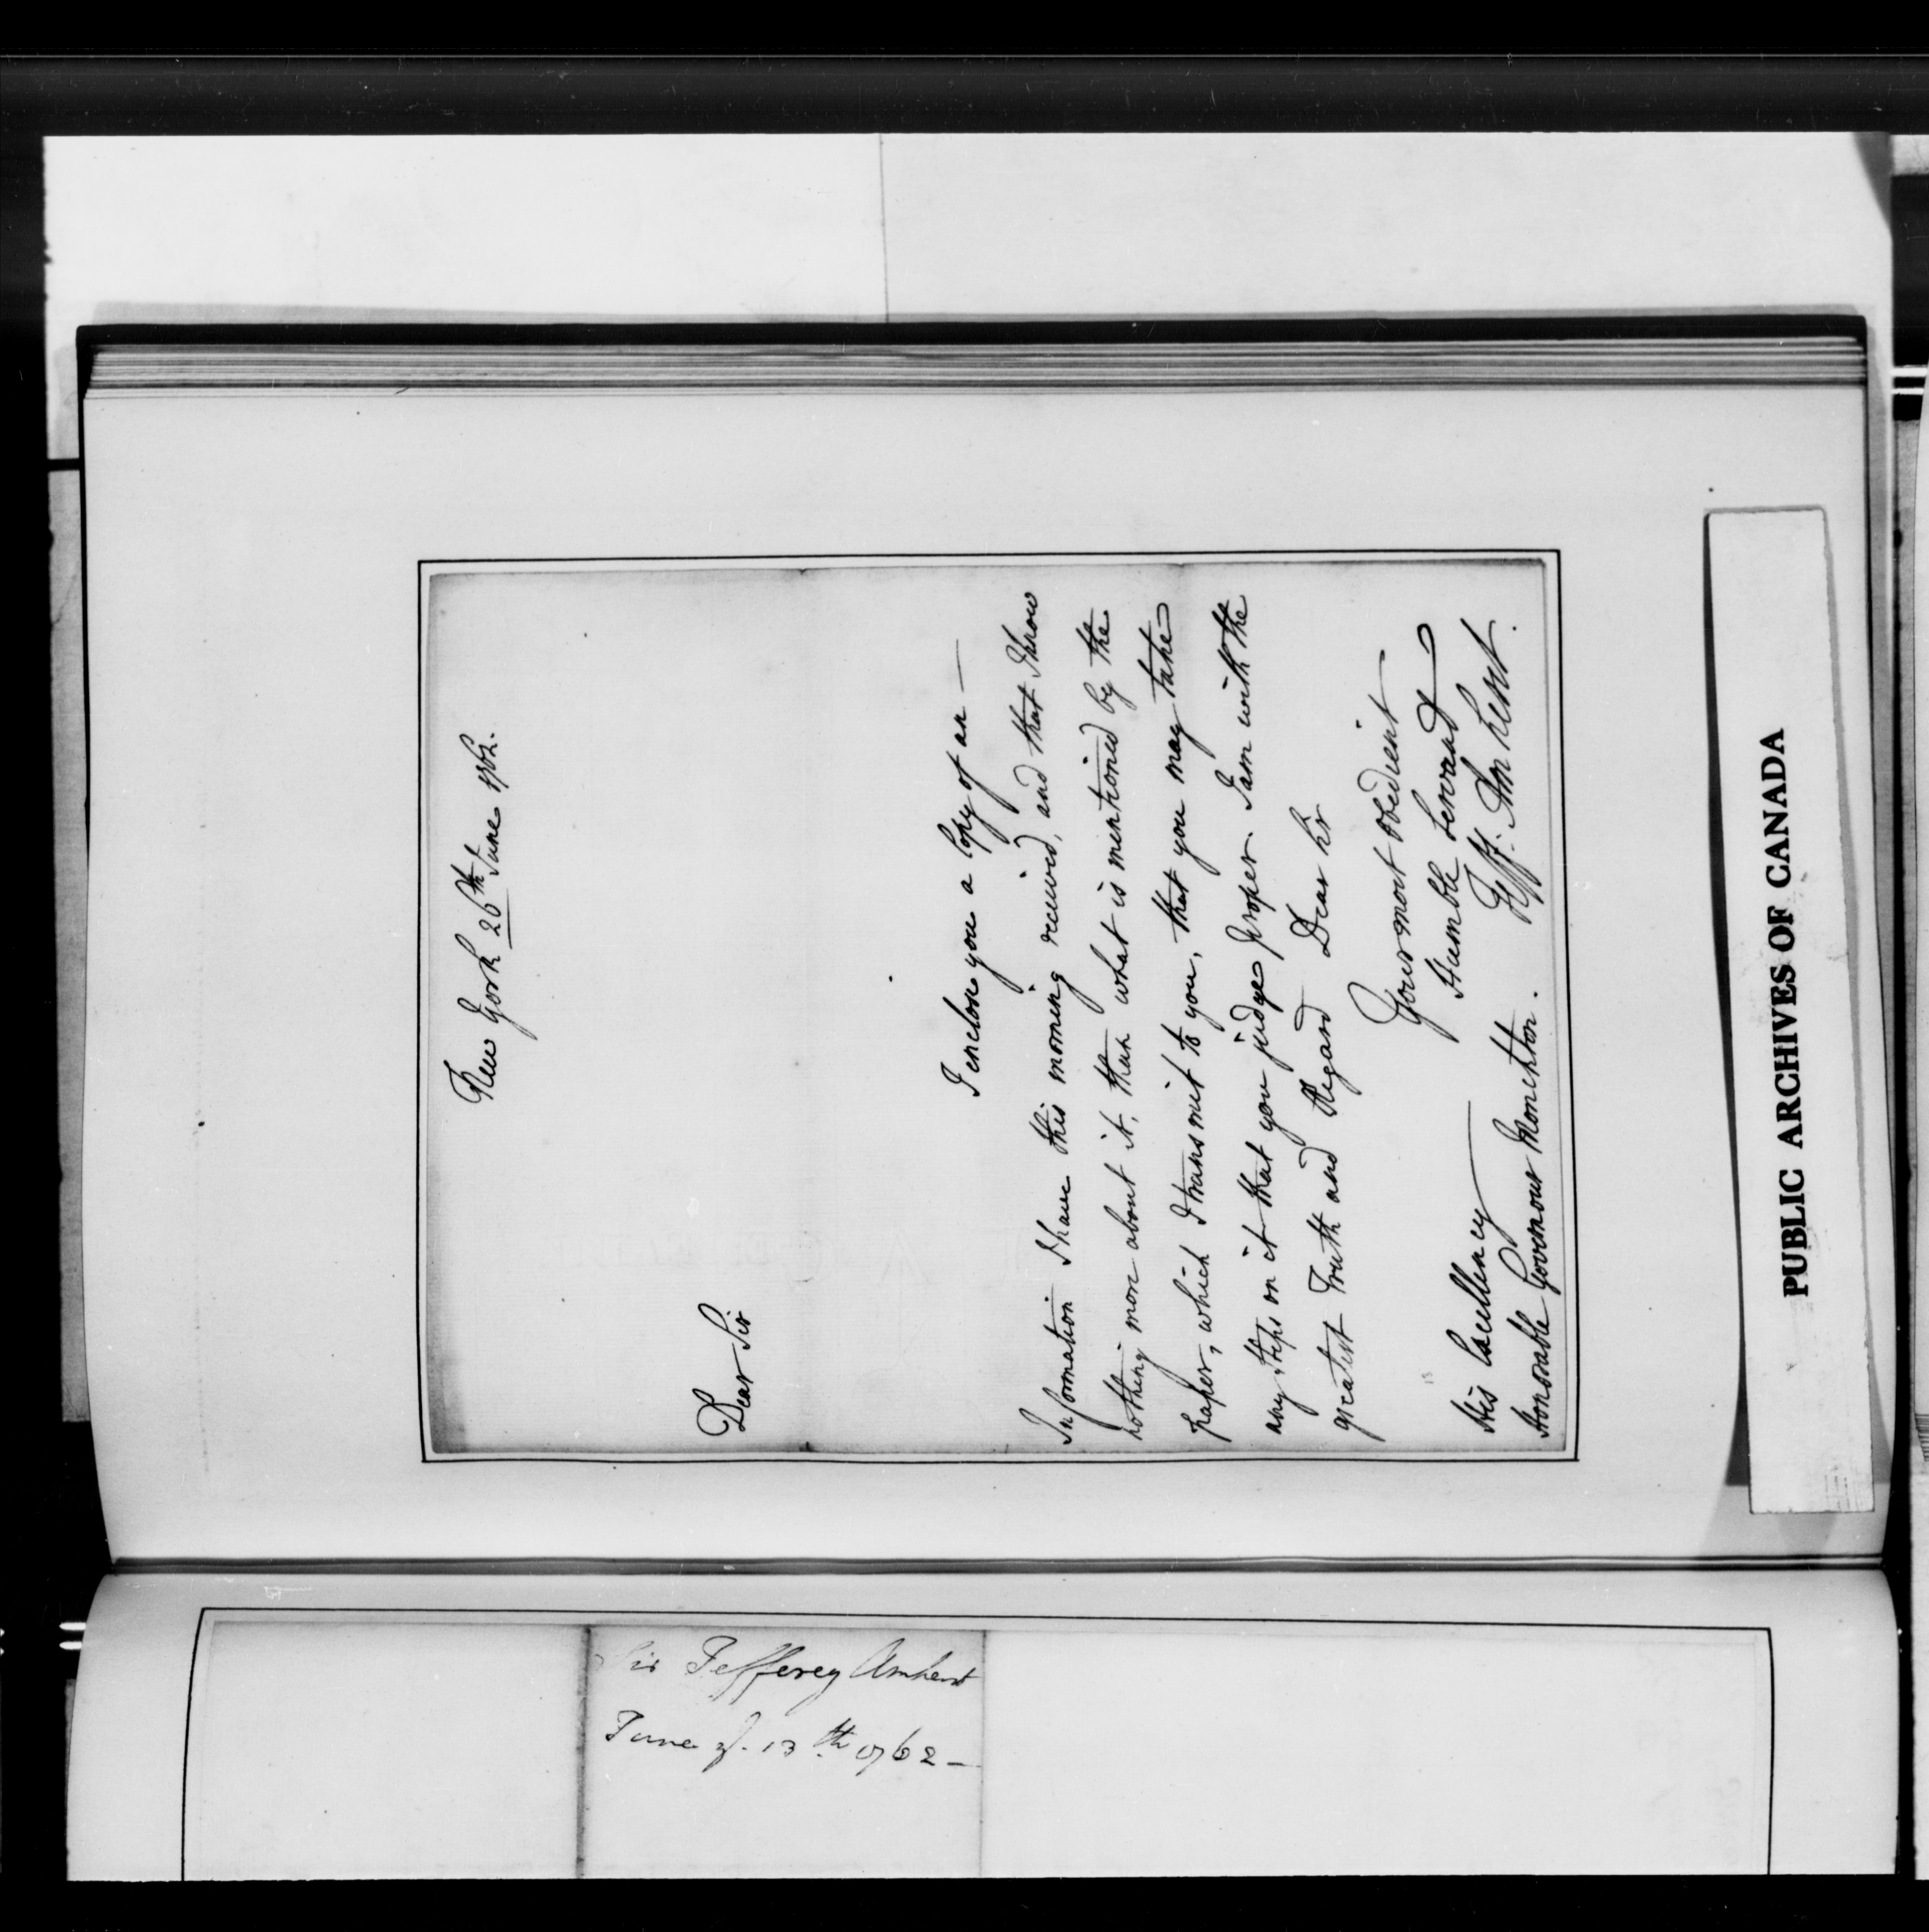 New York 26th June 1762.
Dear Sir
I enclose you a Copy of an
Information I have this morning received, and that I know
nothing more about it, than what is mentioned by the
paper, which I transmit to you, that you may take
any steps on it that you judge proper. I am with the
greatest Truth and Regard Dear Sr
Your most obedient
Humble Servant
Jeff: Amherst.
His Excellency
Honorable Governour Monckton.
PUBLIC ARCHIVES OF CANADA
Sir Jefferey Amherst
June ye. 13th 1762